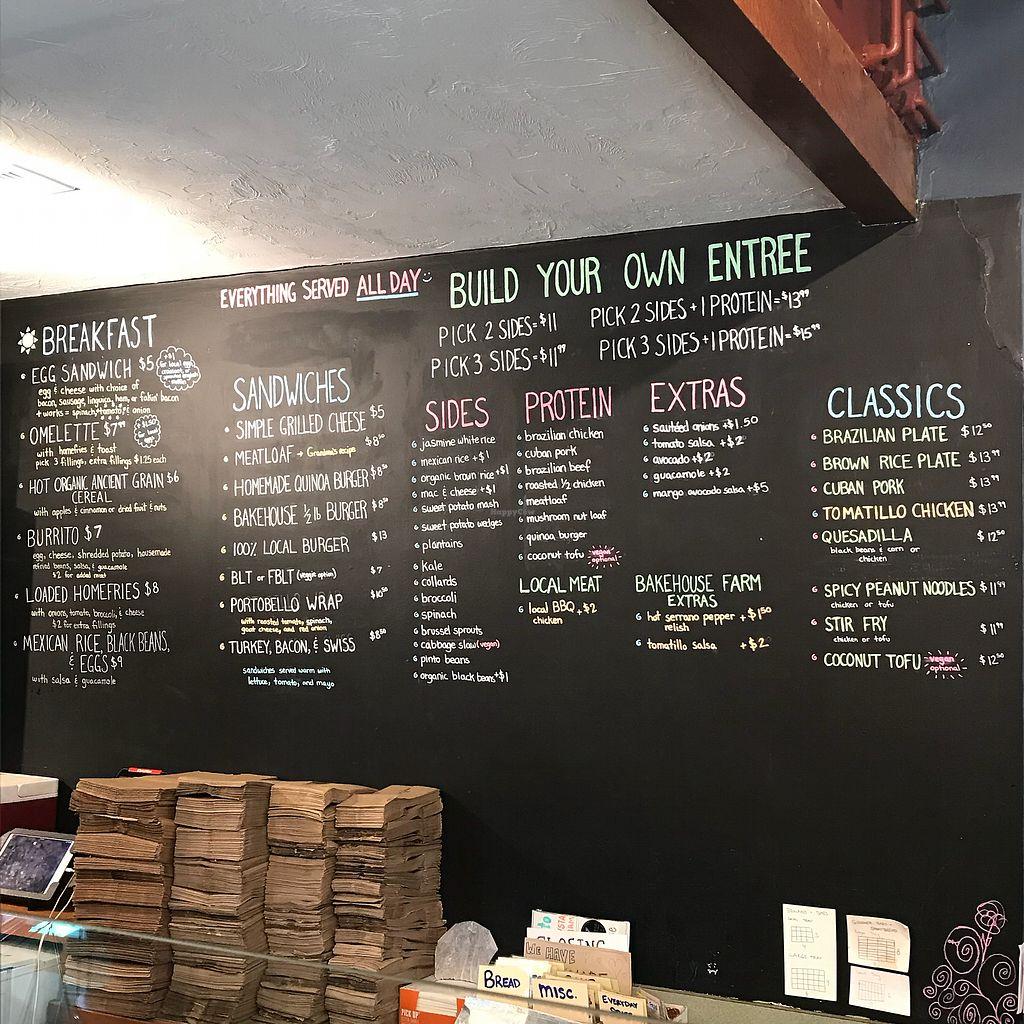 EVERYTHING SERVED ALL DAY
BUILD YOUR OWN ENTREE
PICK 2 SIDES=$11
PICK 2 SIDES+1 PROTEIN=$13⁹⁹
PICK 3 SIDES=$11⁹⁹
PICK 3 SIDES+1 PROTEIN=$15⁹⁹
BREAKFAST
EGG SANDWICH $5
+$1
for local egg,
egg & cheese with choice of
bacon, sausage, linguica, ham, or fakin' bacon
+ works = spinach, tomato, & onion
OMELETTE $7⁹⁹
+$1.50
for local
eggs
with homefries & toast
pick 3 fillings, extra fillings $1.25 each
HOT ORGANIC ANCIENT GRAIN $6
CEREAL
with apples & cinnamon or dried fruit & nuts
BURRITO $7
egg, cheese, shredded potato, housemade
refried beans, salsa, & guacamole
$2 for added meat
LOADED HOMEFRIES $8
with onions, tomato, broccoli, & cheese
$2 for extra fillings
MEXICAN RICE, BLACK BEANS,
& EGGS $9
with salsa & guacamole
SANDWICHES
SIMPLE GRILLED CHEESE $5
MEATLOAF → Grandma's recipe $8⁵⁰
HOMEMADE QUINOA BURGER $8⁵⁰
BAKEHOUSE ½ lb BURGER $8⁵⁰
100% LOCAL BURGER $13
BLT or FBLT (veggie option) $7
PORTOBELLO WRAP $10⁵⁰
with roasted tomato, spinach,
goat cheese, and red onion
TURKEY, BACON, & SWISS $8⁵⁰
sandwiches served warm with
lettuce, tomato, and mayo
SIDES
jasmine white rice
mexican rice +$1
organic brown rice +$1
mac & cheese +$1
sweet potato mash
sweet potato wedges
plantains
kale
collards
broccoli
spinach
brussel sprouts
cabbage slaw (vegan)
pinto beans
organic black beans +$1
PROTEIN
brazilian chicken
cuban pork
brazilian beef
roasted ½ chicken
meatloaf
mushroom nut loaf
quinoa burger
coconut tofu vegan optional
LOCAL MEAT
local BBQ +$2
chicken
EXTRAS
sautéed onions +$1.50
tomato salsa +$2
avocado +$2
guacamole +$2
mango avocado salsa +$5
BAKEHOUSE FARM
EXTRAS
hot serrano pepper +$1⁵⁰
relish
tomatillo salsa +$2
CLASSICS
BRAZILIAN PLATE $12⁵⁰
BROWN RICE PLATE $13⁹⁹
CUBAN PORK $13⁹⁹
TOMATILLO CHICKEN $13⁹⁹
QUESADILLA $12⁵⁰
black beans & corn or
chicken
SPICY PEANUT NOODLES $11⁹⁹
chicken or tofu
STIR FRY $11⁹⁹
chicken or tofu
COCONUT TOFU vegan optional $12⁵⁰
HappyCow
CLOSING
WE HAVE
BREAD
MISC.
EVERYDAY
PICK UP